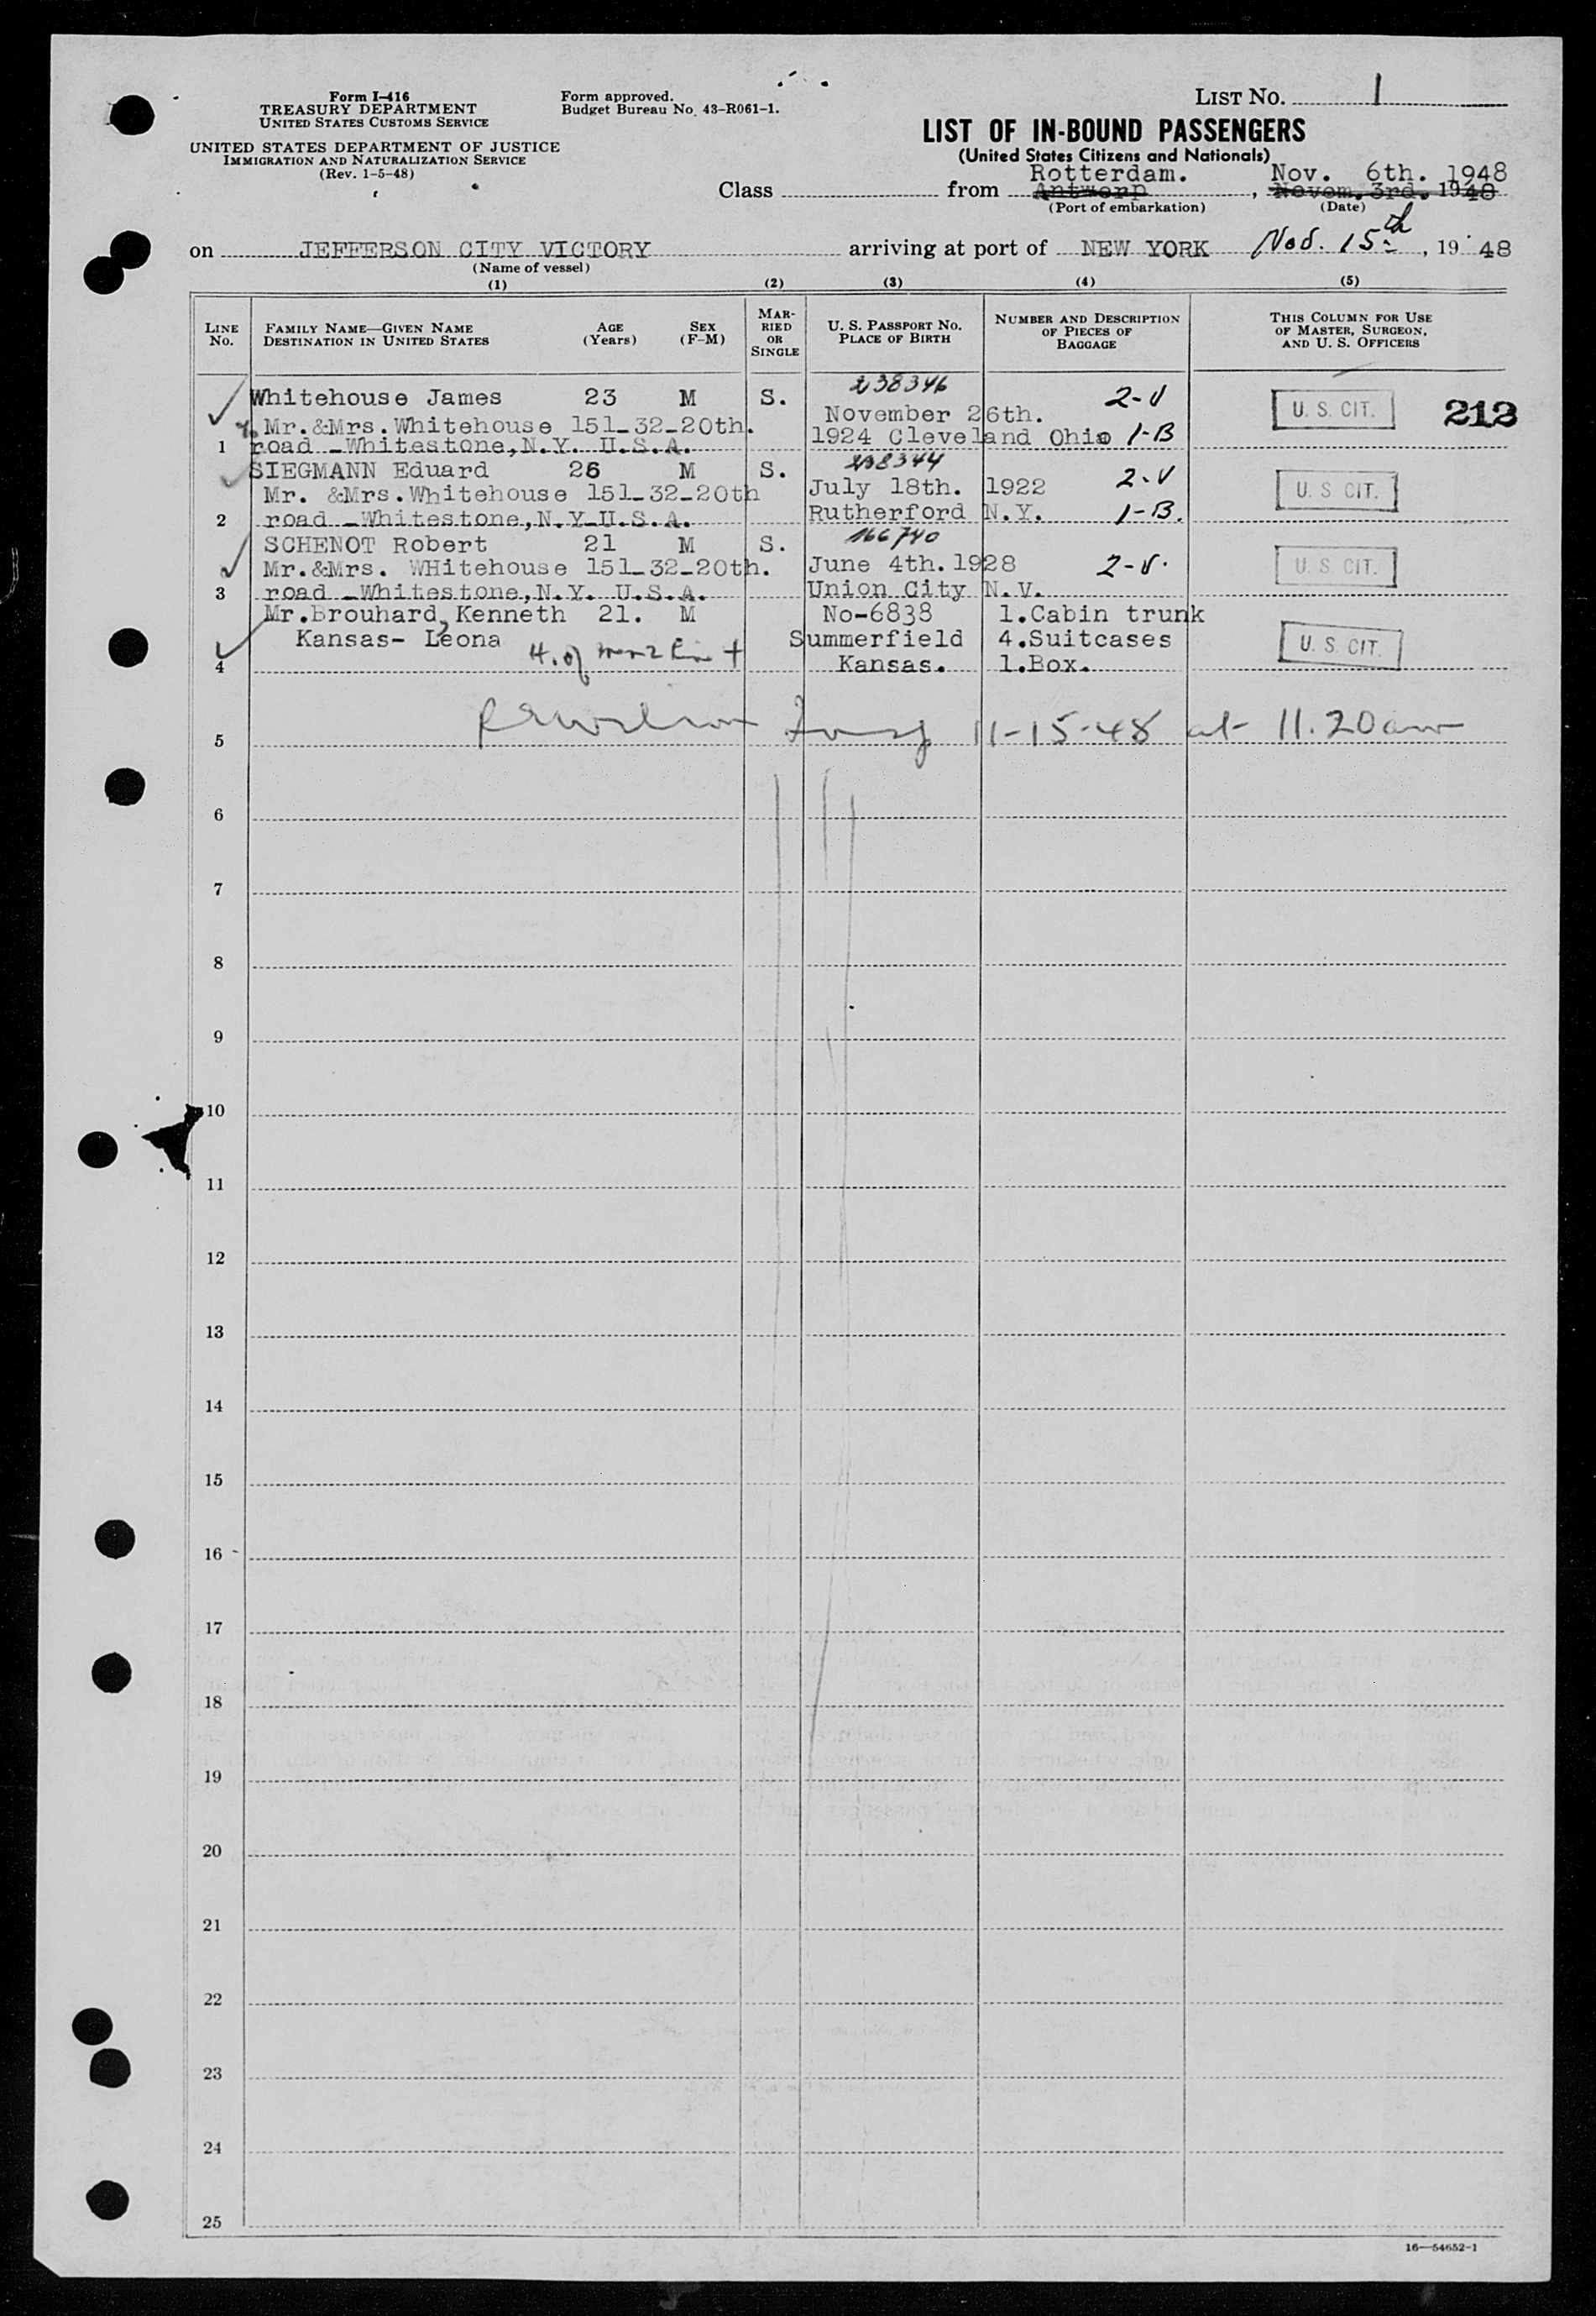 Form I-416
TREASURY DEPARTMENT
UNITED STATES CUSTOMS SERVICE
UNITED STATES DEPARTMENT OF JUSTICE
IMMIGRATION AND NATURALIZATION SERVICE
(Rev. 1-5-48)
Form approved.
Budget Bureau No. 43-R061-1.
LIST NO. 1
LIST OF IN-BOUND PASSENGERS
(United States Citizens and Nationals)
Rotterdam. Nov. 6th. 1948
Class from Antwerp, Novem. 3rd. 1948
(Port of embarkation) (Date)
on JEFFERSON CITY VICTORY arriving at port of NEW YORK Nov. 15th, 19 48
(Name of vessel)
(1) (2) (3) (4) (5)
LINE NO.
FAMILY NAME—GIVEN NAME
DESTINATION IN UNITED STATES
AGE (Years)
SEX (F-M)
MARRIED OR SINGLE
U. S. PASSPORT NO.
PLACE OF BIRTH
NUMBER AND DESCRIPTION
OF PIECES OF
BAGGAGE
THIS COLUMN FOR USE
OF MASTER, SURGEON,
AND U. S. OFFICERS
Whitehouse James 23 M S. 238346 2-V U. S. CIT. 212
Mr.&Mrs.Whitehouse 151-32-20th. November 26th.
1 road -Whitestone,N.Y. U.S.A. 1924 Cleveland Ohio 1-B
SIEGMANN Eduard 26 M S. 238344 2-V
Mr. &Mrs.Whitehouse 151-32-20th July 18th. 1922 U. S CIT.
2 road -Whitestone,N.Y-U.S.A. Rutherford N.Y. 1-B.
SCHENOT Robert 21 M S. 166740
Mr.&Mrs. WHitehouse 151-32-20th. June 4th. 1928 2-V. U. S. CIT.
3 road -Whitestone,N.Y. U.S.A. Union City N.V.
Mr.Brouhard, Kenneth 21. M No-6838 1.Cabin trunk
Kansas- Leona Summerfield 4.Suitcases U. S. CIT.
4 Kansas. 1.Box.
5 11-15-48 at 11.20am
6
7
8
9
10
11
12
13
14
15
16
17
18
19
20
21
22
23
24
25
16—54652-1